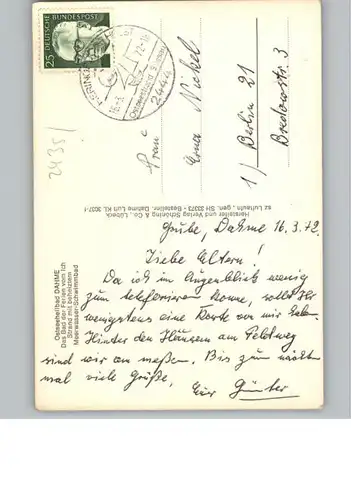 DEUTSCHE BUNDESPOST
25
16.-3. 72-18
2444
Ostseeheilbad
2435/
Frau
Erna Nickel
1) Berlin 21
Bredowstr. 3
Hersteller und Verlag Schöning & Co., Lübeck
sz Luftaufn., gen. SH 33373 - Bestellnr. Dahme Luft KL 3037-f
Ostseeheilbad DAHME
Das Bad der Ferien vom Ich
Strand mit beheiztem
Meerwasser-Schwimmbad
Grube, Dahme 16.3.72
Liebe Eltern!
Da ich im Augenblick wenig
zum telefonieren komme, sollt Ihr
wenigstens eine Karte von mir haben.
Hinter den Häusern am Feldweg
sind wir am messen. Bis zum nächsten
mal viele Grüße,
Euer Günter